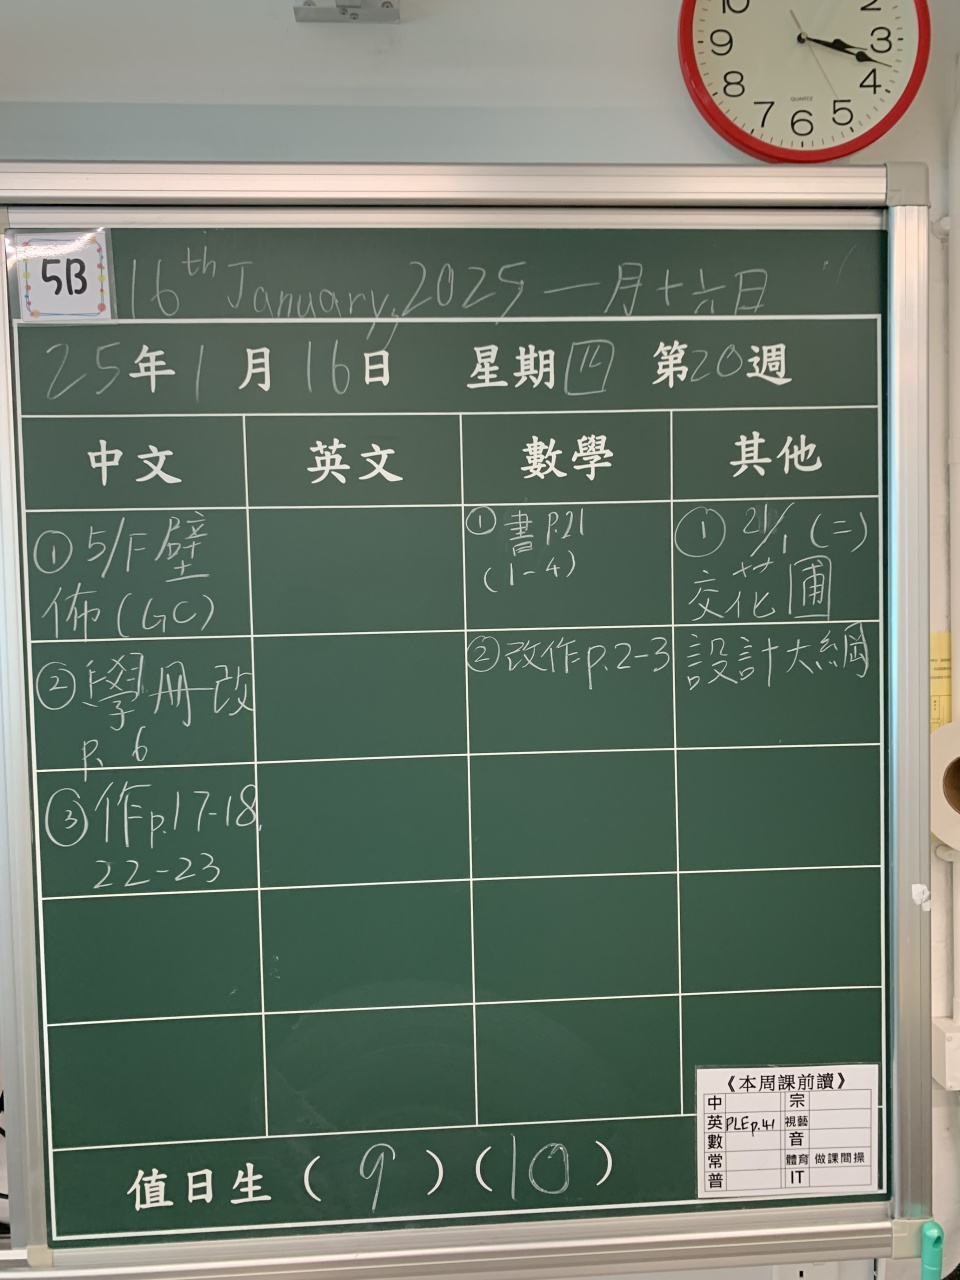 10 2
9 3
8 4
7 6 5
QUARTZ
5B
16th January, 2025 一月十六日
25年1月16日 星期四 第20週
中文 英文 數學 其他
① 5/F壁
佈(GC)
② 學册改
p. 6
③ 作p.17-18,
22-23
① 書 P.21
(1-4)
② 改作p.2-3
① 21/1 (二)
交花圃
設計大綱
值日生 ( 9 ) ( 10 )
《本周課前讀》
中 宗
英 PLE p.41 視藝
數 音
常 體育 做課間操
普 IT